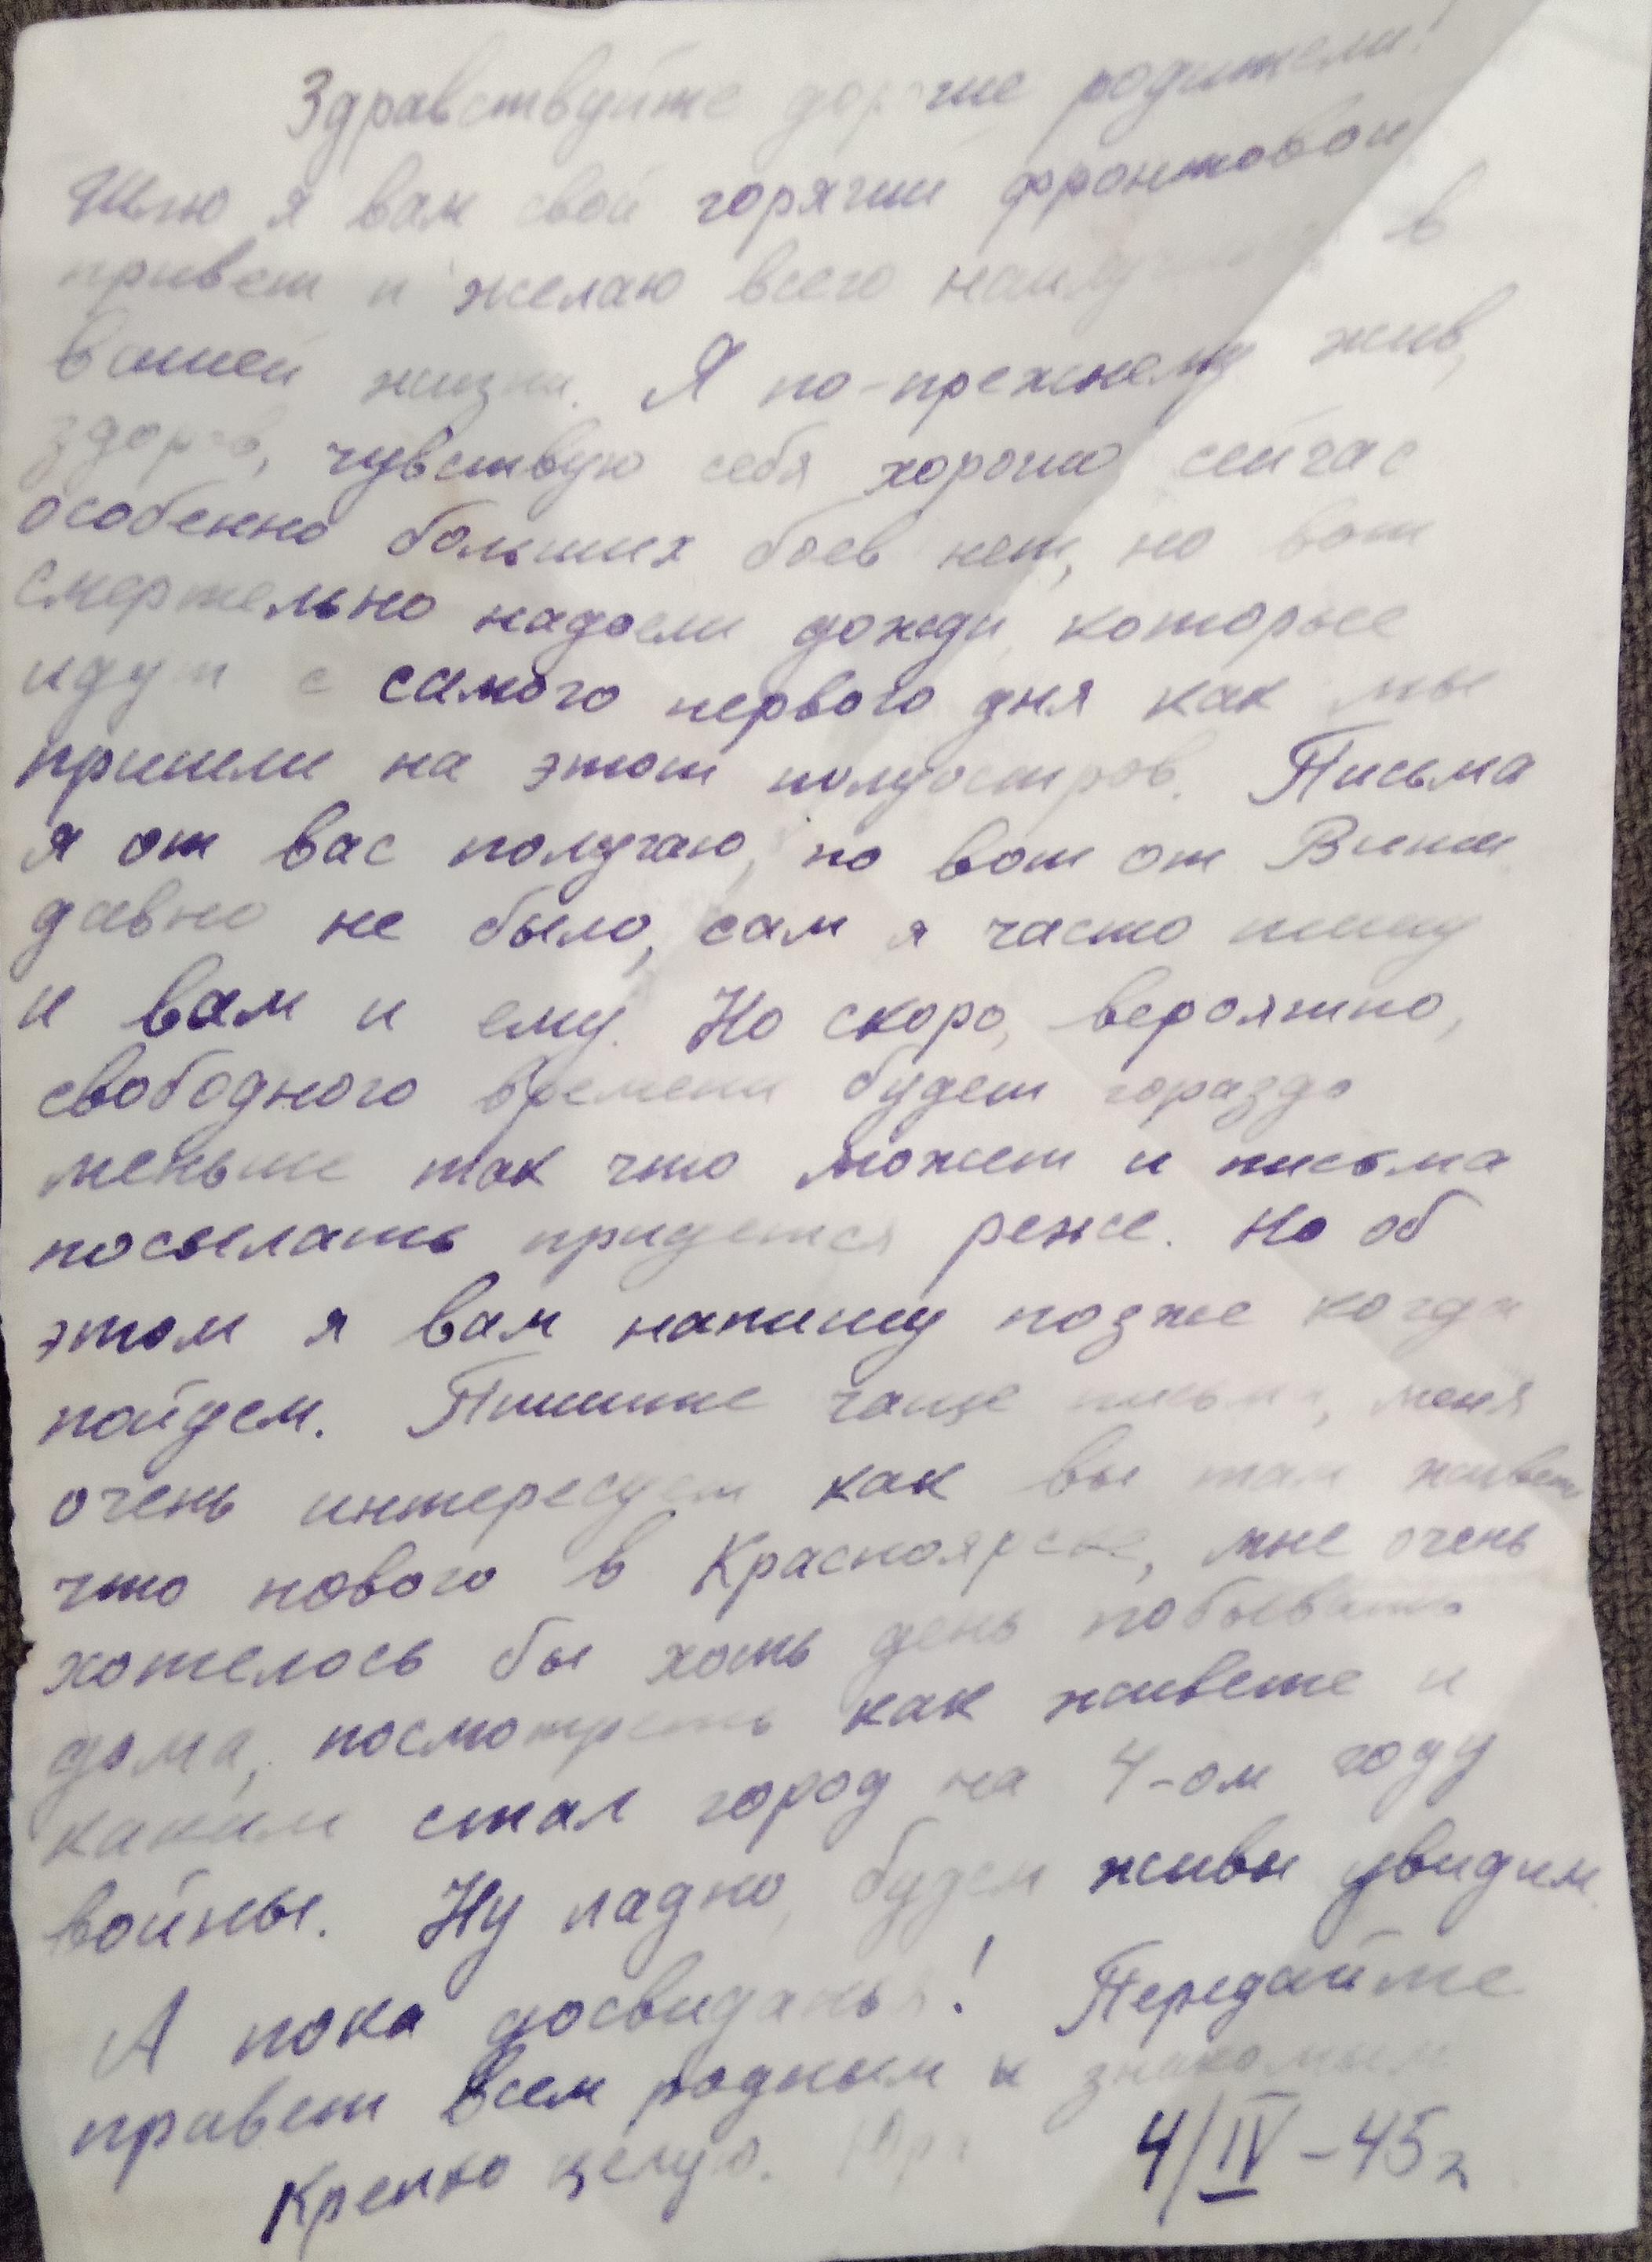 Здравствуйте дорогие родители!
Шлю я вам свой горячий фронтовой
привет и желаю всего наилучшего в
вашей жизни. Я по-прежнему жив,
здоров, чувствую себя хорошо сейчас
особенно больших боев нет, но вот
смертельно надоели дожди которые
идут с самого первого дня как мы
пришли на этот полуостров. Письма
я от вас получаю, но вот от
давно не было, сам я часто пишу
и вам и ему. Но скоро, вероятно,
свободного времени будет гораздо
меньше так что может и письма
посылать придется реже. Но об
этом я вам напишу позже когда
пойдем. Пишите чаще письма, меня
очень интересует как вы там живете
что нового в Красноярске, мне очень
хотелось бы хоть день побывать
дома, посмотреть как живете и
каким стал город на 4-ом году
войны. Ну ладно, будем живы увидим.
А пока досвиданья! Передайте
привет всем родным и знакомым.
Крепко целую. Юра 4/IV-45г